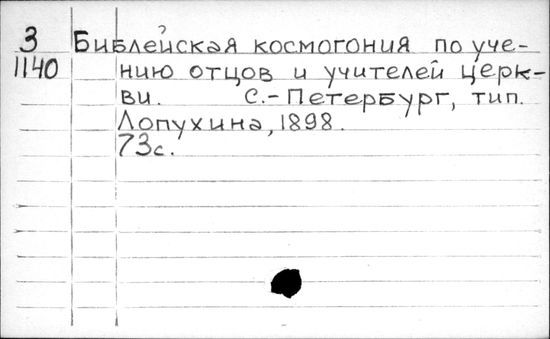 З Библейская космогония по уче-
1140 нию отцов и учителей церк-
ви. С.-Петербург, тип.
Лопухина, 1898.
73с.